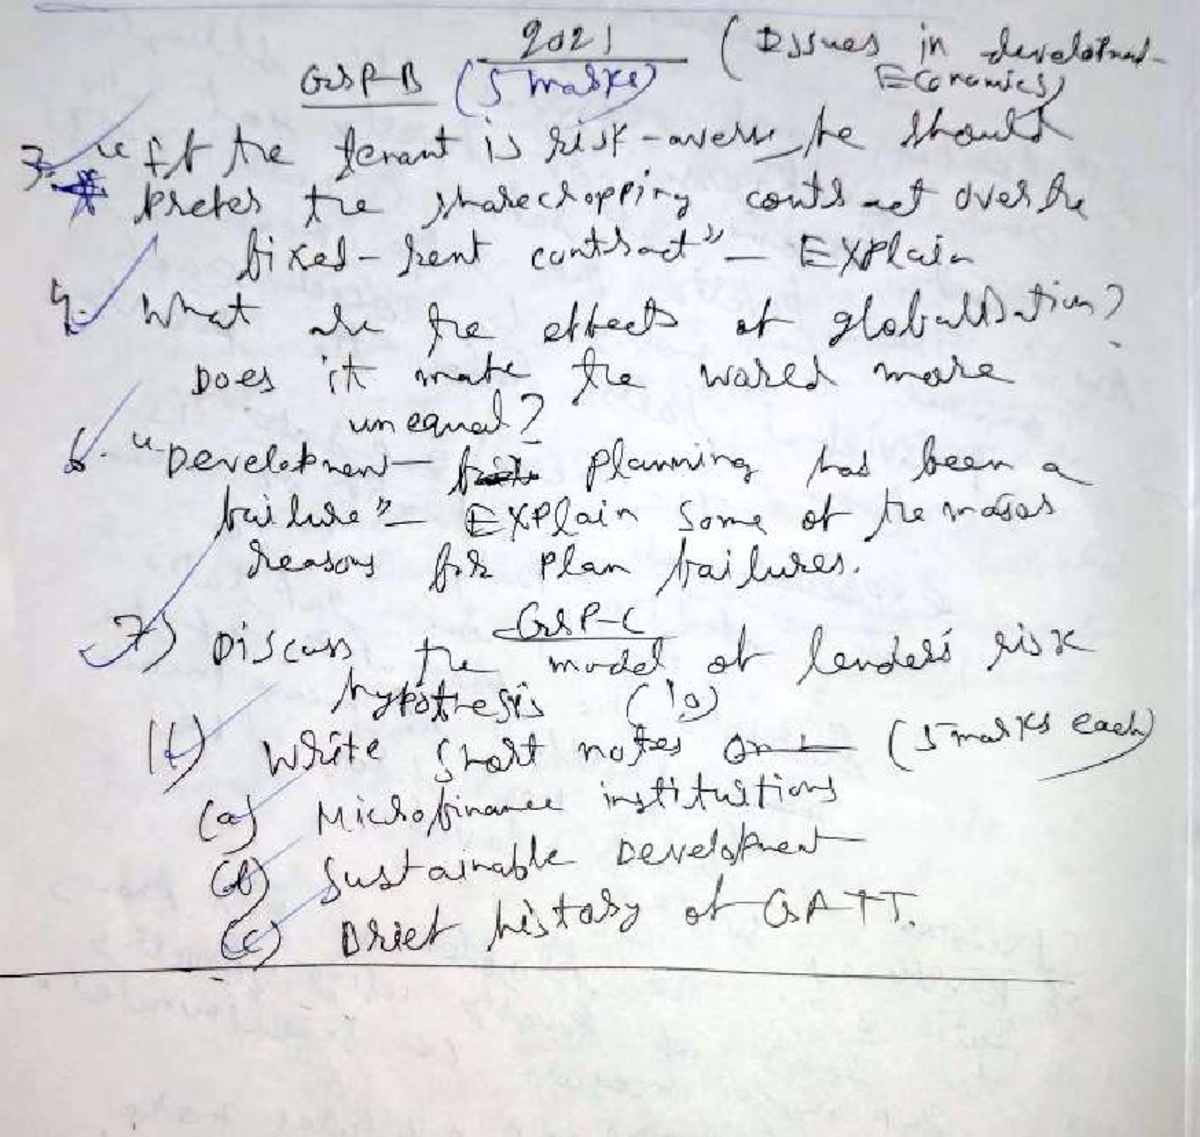 2021 (Issues in development
GRP-B (5 marks) Economics)
3. "If the tenant is risk-averse, he should
prefer the sharecropping contract over the
fixed-rent contract" – Explain
4. What are the effects of globalisation?
Does it make the world more
unequal?
6. "Development – planning has been a
failure" – Explain some of the major
reasons for plan failures.
GRP-C
7) Discuss the model of lender's risk
hypothesis (10)
11) Write short notes on – (5 marks each)
(a) Microfinance instituitions
(b) Sustainable Development
(c) Brief history of GATT.